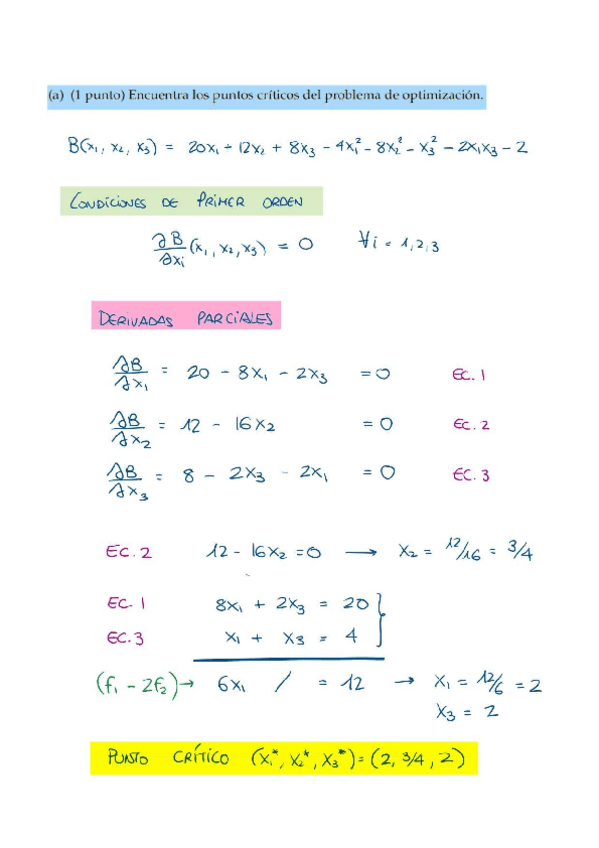 (a) (1 punto) Encuentra los puntos críticos del problema de optimización.
B(x₁, x₂, x₃) = 20x₁ + 12x₂ + 8x₃ - 4x₁² - 8x₂² - x₃² - 2x₁x₃ - 2
CONDICIONES DE PRIMER ORDEN
∂B/∂xi (x₁, x₂, x₃) = 0 ∀i = 1,2,3
DERIVADAS PARCIALES
∂B/∂x₁ = 20 - 8x₁ - 2x₃ = 0 EC. 1
∂B/∂x₂ = 12 - 16x₂ = 0 EC. 2
∂B/∂x₃ = 8 - 2x₃ - 2x₁ = 0 EC. 3
EC. 2 12 - 16x₂ = 0 → x₂ = 12/16 = 3/4
EC. 1 8x₁ + 2x₃ = 20 }
EC. 3 x₁ + x₃ = 4
(f₁ - 2f₂) → 6x₁ / = 12 → x₁ = 12/6 = 2
x₃ = 2
PUNTO CRÍTICO (x₁*, x₂*, x₃*) = (2, 3/4, 2)